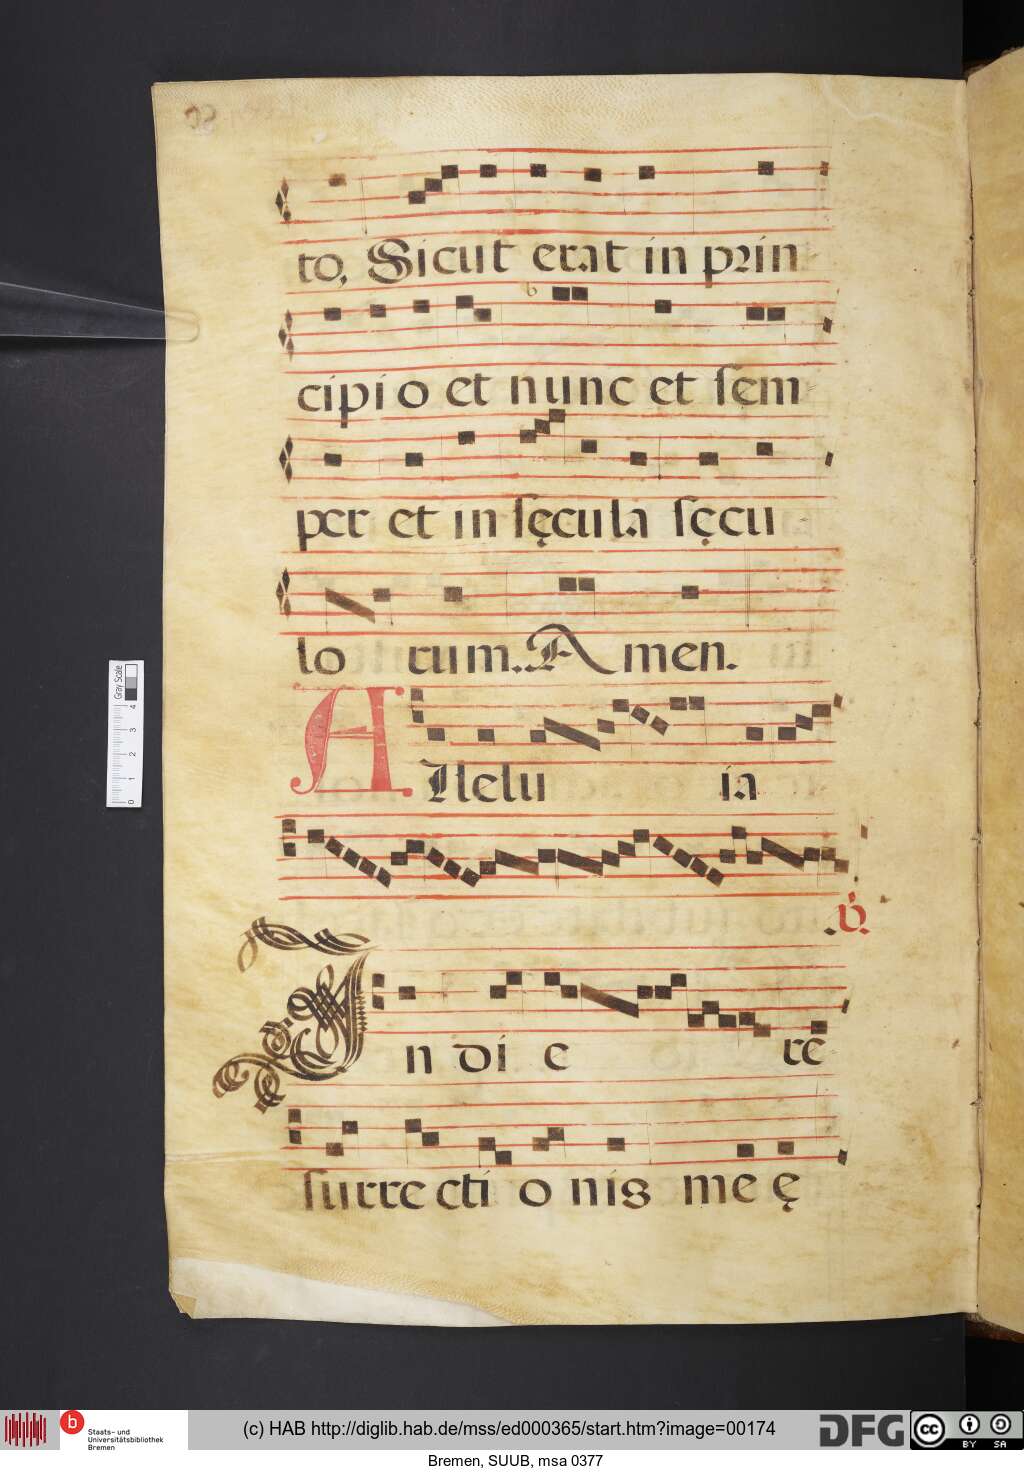 to, Sicut erat in prin
cipi o et nunc et sem
per et in sęcula sęcu
lo rum. Amen.
Allelu ia
℣.
In di e re
surre cti o nis me ę
Gray Scale
0 1 2 3 4
b
Staats- und
Universitätsbibliothek
Bremen
(c) HAB http://diglib.hab.de/mss/ed000365/start.htm?image=00174
DFG
cc BY SA
Bremen, SUUB, msa 0377